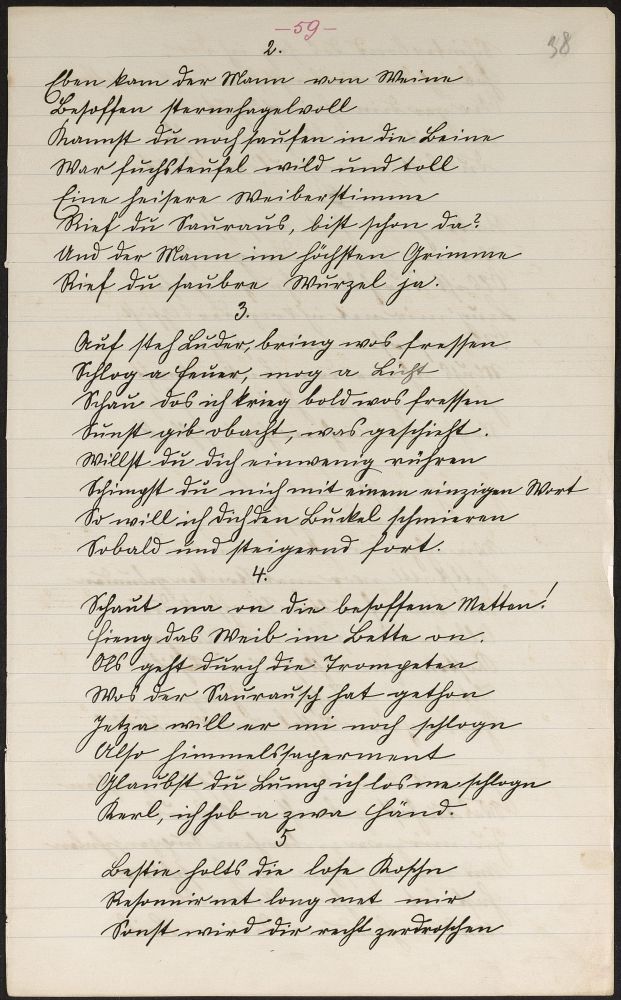 -59-
38
2.
Eben kam der Mann vom Weine
Besoffen sternehagelvoll
Kannst du noch saufen in die Beine
War fuchsteufel wild und toll
Eine heisere Weiberstimme
Rief du Sauraus, bist schon da?
Und der Mann im höchsten Grimme
Rief du saubre Wurzel ja.
3.
Auf steh Luder, bring wos fressen
Schlog a Feuer, mog a Licht
Schau das ich krieg bold wos fressen
Sunst gib obacht, was geschieht.
Willst du dich einwenig rühren
Schimpft du mich mit einem einzigen Wort
So will ich dich den Buckel schmieren
Sobald und steigernd fort.
4.
Schaut ma on die besoffene Metten!
Fieng das Weib im Bette on.
Ols geht durch die Trompeten
Wos der Saurausch hat gethon
Jetza will er mi noch schlogn
Also himmelssaperment
Glaubst du Lump ich los me schlogn
Kerl, ich hob a zwa Händ.
5
Bestie holts die lose Koschn
Resonnir net long met mir
Sonst wird dir recht zerdroschen